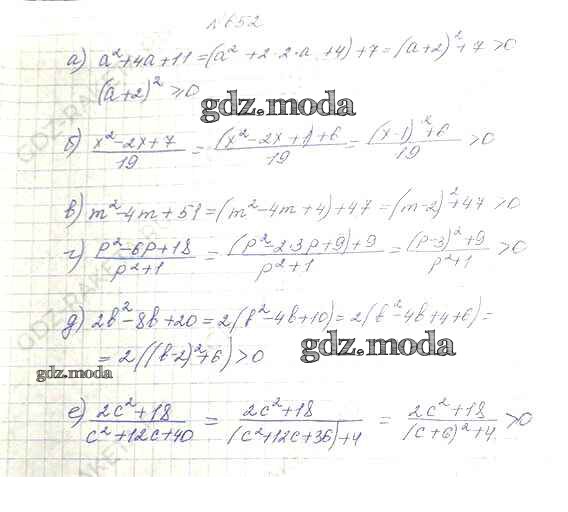 №652
а) a²+4a+11=(a²+2·2·a+4)+7=(a+2)²+7>0
(a+2)²≥0
gdz.moda
б) x²-2x+7/19 = (x²-2x+1)+6/19 = (x-1)²+6/19 >0
в) m²-4m+51=(m²-4m+4)+47=(m-2)²+47>0
г) p²-6p+18/p²+1 = (p²-2·3p+9)+9/p²+1 = (p-3)²+9/p²+1 >0
д) 2b²-8b+20=2(b²-4b+10)=2(b²-4b+4+6)=
=2((b-2)²+6)>0
gdz.moda
gdz.moda
е) 2c²+18/c²+12c+40 = 2c²+18/(c²+12c+36)+4 = 2c²+18/(c+6)²+4 >0